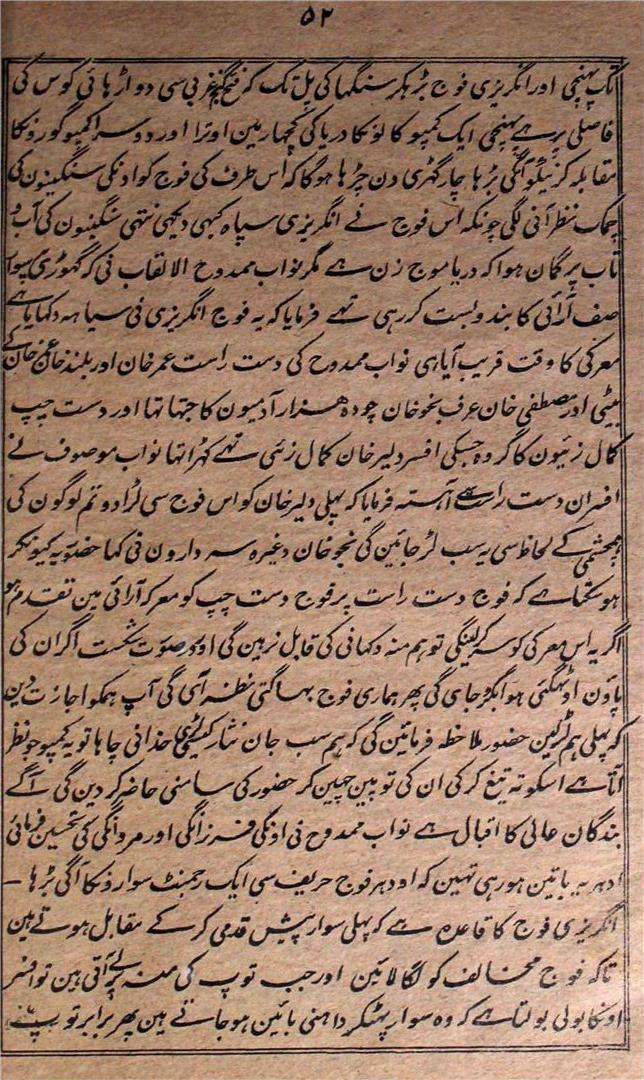 ۵۲
تک پہنچی اور انگریزی فوج بڑہکر سنگہا کی پل تک کہ فتح گنج غربی سی دو اڑہائی کوس کی
فاصلی پر ہے پہنچی ایک کمپو کا لؤکا دریا کی کچہار مین اوترا اور دوسرا کمپو گورونکا
مقابلہ کرنیکو آگی بڑہا چار گہڑی دن چڑہا ہوگا کہ اس طرف کی فوج کو اونکی سنگینون کی
چمک نظر آنی لگی چونکہ اس فوج نے انگریزی سپاہ کبہی دیکہی نتہی سنگینون کی آب و
تاب پر گمان ہوا کہ دریا موج زن ہے مگر نواب ممدوح الالقاب نی کہ گہوڑی سوار
صف آرائی کا بندوبست کر رہی تہے فرمایا کہ یہ فوج انگریزی نی سیاہہ دکہایا ہے
معرکی کا وقت قریب آیا ہی نواب ممدوح کی دست راست عمر خان اور بلند خان خان کے
بیٹی اور مصطفی خان عرف بخو خان چودہ ہزار آدمیون کا جتہا تہا اور دست چپ
کمال زئیون کا گروہ جسکی افسر دلیر خان کمال زئی تہے کہڑا تہا نواب موصوف نے
افسران دست راست سے آہستہ فرمایا کہ پہلی دلیر خان کو اس فوج سی لڑا دو تم لوگون کی
ہمچشمی کے لحاظ سی یہ سب لڑ جائین گی بخو خان وغیرہ سردارون نی کہا حضور یہ کیونکر
ہو سکتا ہے کہ فوج دست راست پر فوج دست چپ کو معرکہ آرائی مین تقدم ہو
اگر یہ اس معرکی کو سر کرلینگی تو ہم منہ دکہانی کی قابل نرہین گی اور بصورت شکست اگر ان کی
پاؤن اوٹہگئی ہوا بگڑ جای گی پہر ہماری فوج بہاگتی نظر آی گی آپ ہمکو اجازت دین
کہ پہلی ہم لڑین حضور ملاحظہ فرمائین گی کہ ہم سب جان نثار کیسی لڑی خدانی چاہا تو یہ کمپو جو نظر
آتا ہے اسکو تہ تیغ کر کی ان کی توبین چہین کر حضور کی سامنی حاضر کر دین گی آگے
بندگان عالی کا اقبال ہے نواب ممدوح نی اونکی فرزانگی اور مردانگی کی تحسین فرمائی
ادہر یہ باتین ہو رہی تہین کہ اودہر فوج حریف سی ایک رجمنٹ سوارونکا آگی بڑہا ـ
انگریزی فوج کا قاعدہ ہے کہ پہلی سوار پیش قدمی کر کے مقابل ہوتے ہین
تاکہ فوج مخالف کو لگا لائین اور جب توپ کی منہ پر لے آتی ہین تو افسر
اونکا بولی بولتا ہے کہ وہ سوار پہٹکر داہنی بائین ہو جاتے ہین پہر برابر توپ